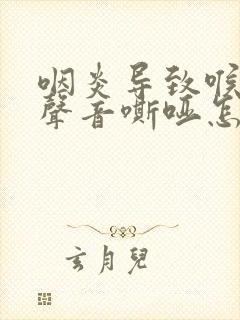 咽炎导致喉
聲音嘶哑怎
玄月兒